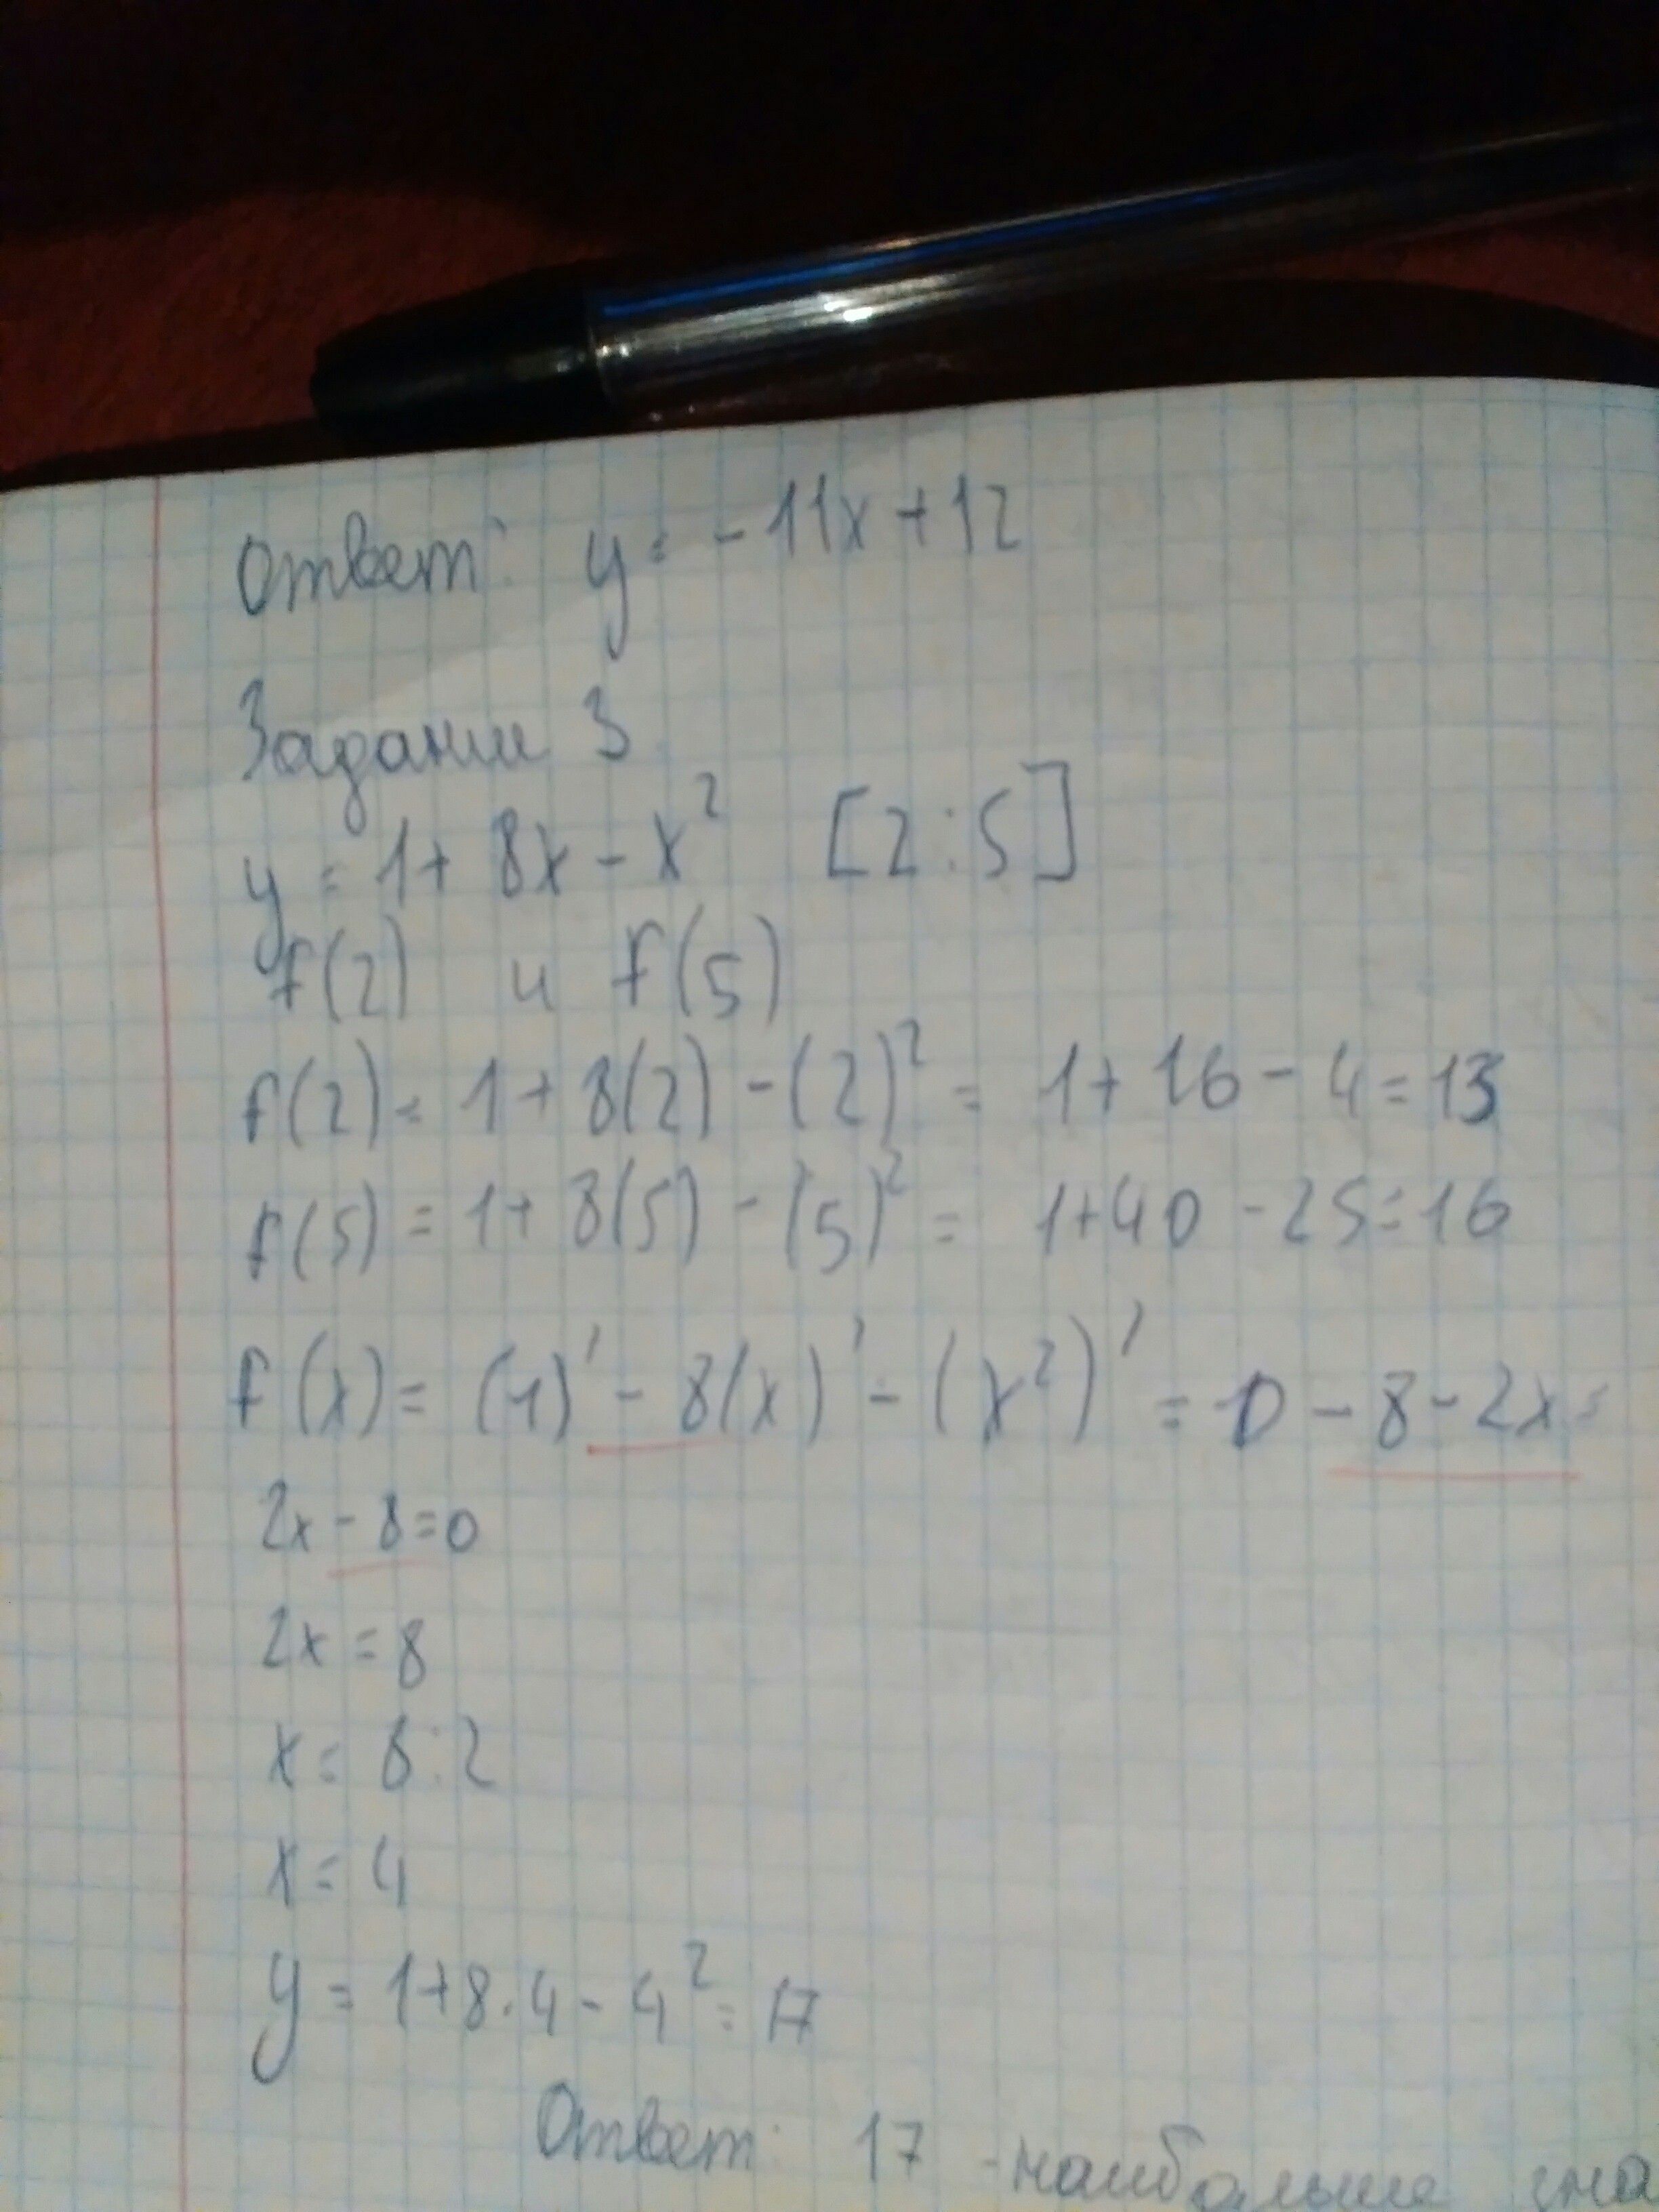 Ответ: y = -11x + 12
Задание 3
y = 1 + 8x - x²   [2:5]
f(2)   и   f(5)
f(2) = 1 + 8(2) - (2)² = 1 + 16 - 4 = 13
f(5) = 1 + 8(5) - (5)² = 1 + 40 - 25 = 16
f(x) = (1)' - 8(x)' - (x²)' = 0 - 8 - 2x =
2x - 8 = 0
2x = 8
x = 8 : 2
x = 4
y = 1 + 8 · 4 - 4² = 17
Ответ: 17 - наибольшее зна